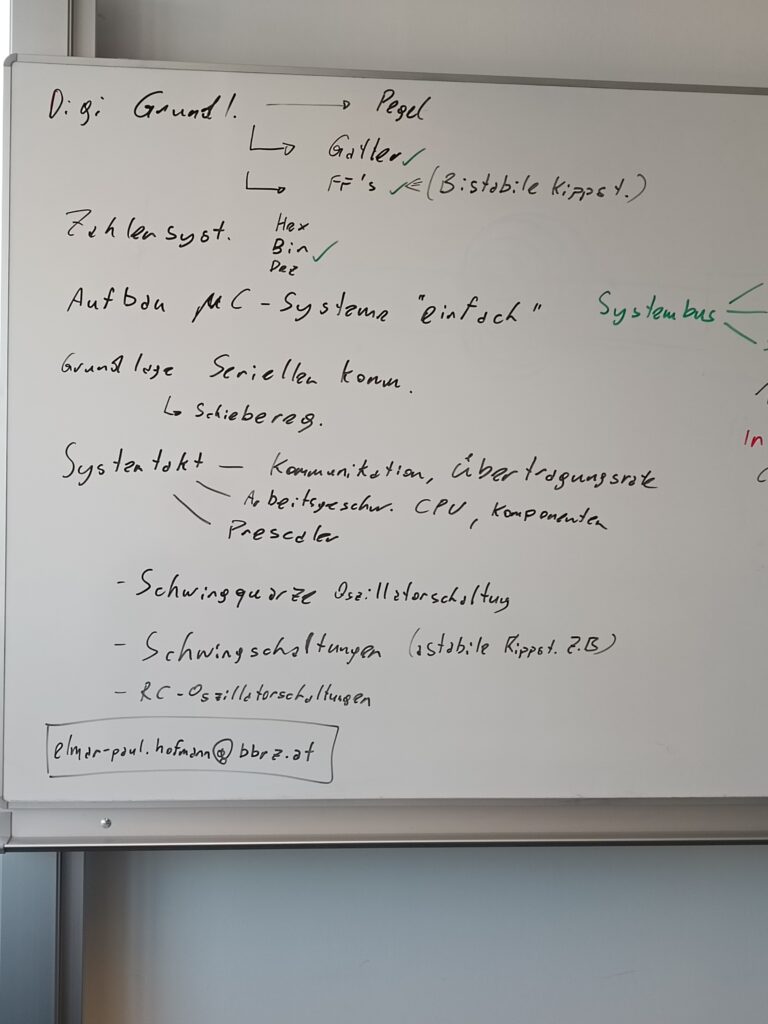 Digi Grundl. → Pegel
↳ Gatter ✓
↳ FF's ✓ (Bistabile Kippst.)
Zahlensyst. Hex
Bin ✓
Dez
Aufbau µC-Systeme "einfach" Systembus
Grundlage Seriellen Komm.
↳ Schiebereg.
Systemtakt — Kommunikation, Übertragungsrate
Arbeitsgeschw. CPU, Komponenten
Prescaler
- Schwingquarze Oszillatorschaltug
- Schwingschaltungen (astabile Kippst. Z.B)
- RC-Oszillatorschaltungen
elmar-paul.hofmann@bbrz.at
In